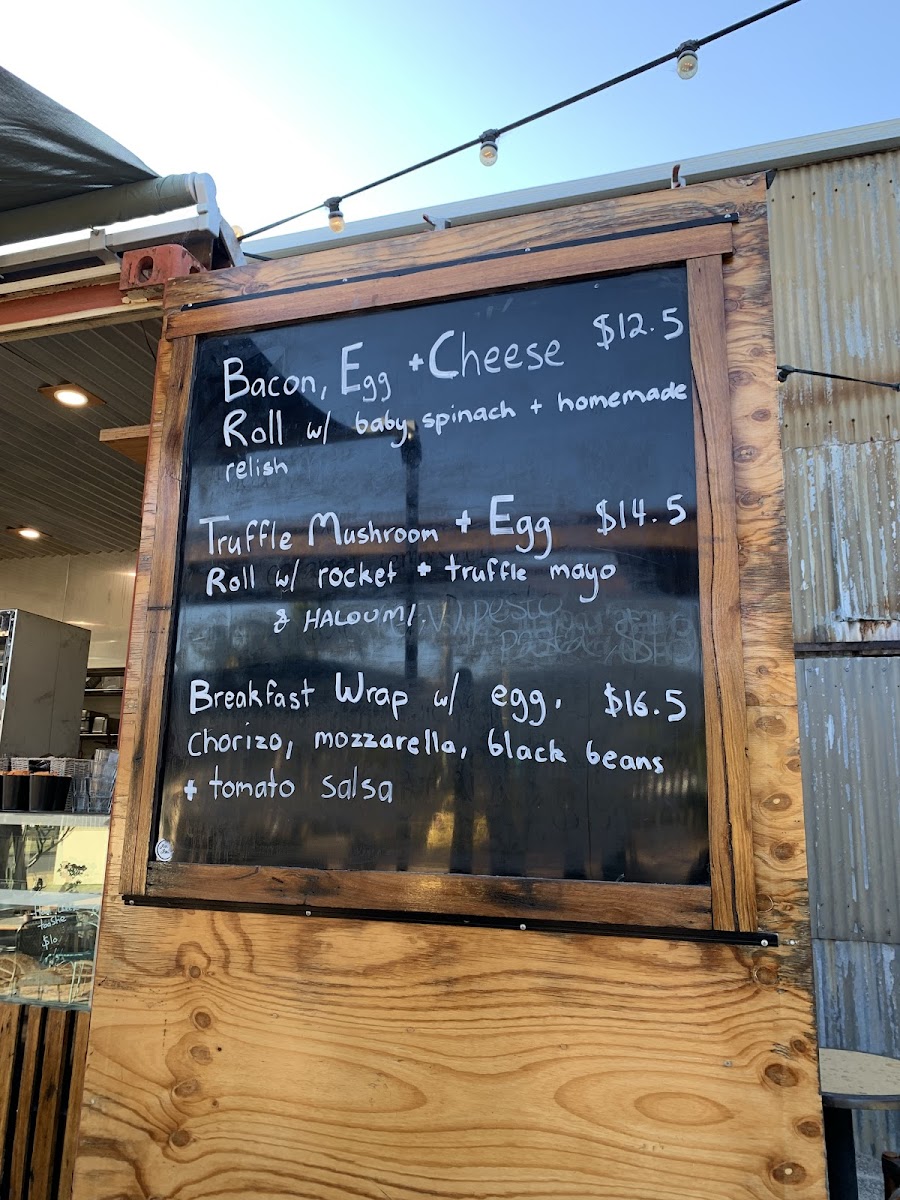 Bacon, Egg + Cheese $12.5
Roll w/ baby spinach + homemade
relish
Truffle Mushroom + Egg $14.5
Roll w/ rocket + truffle mayo
& HALOUMI.
pesto
pasta
Breakfast Wrap w/ egg, $16.5
Chorizo, mozzarella, black beans
+ tomato salsa
toastie
$10